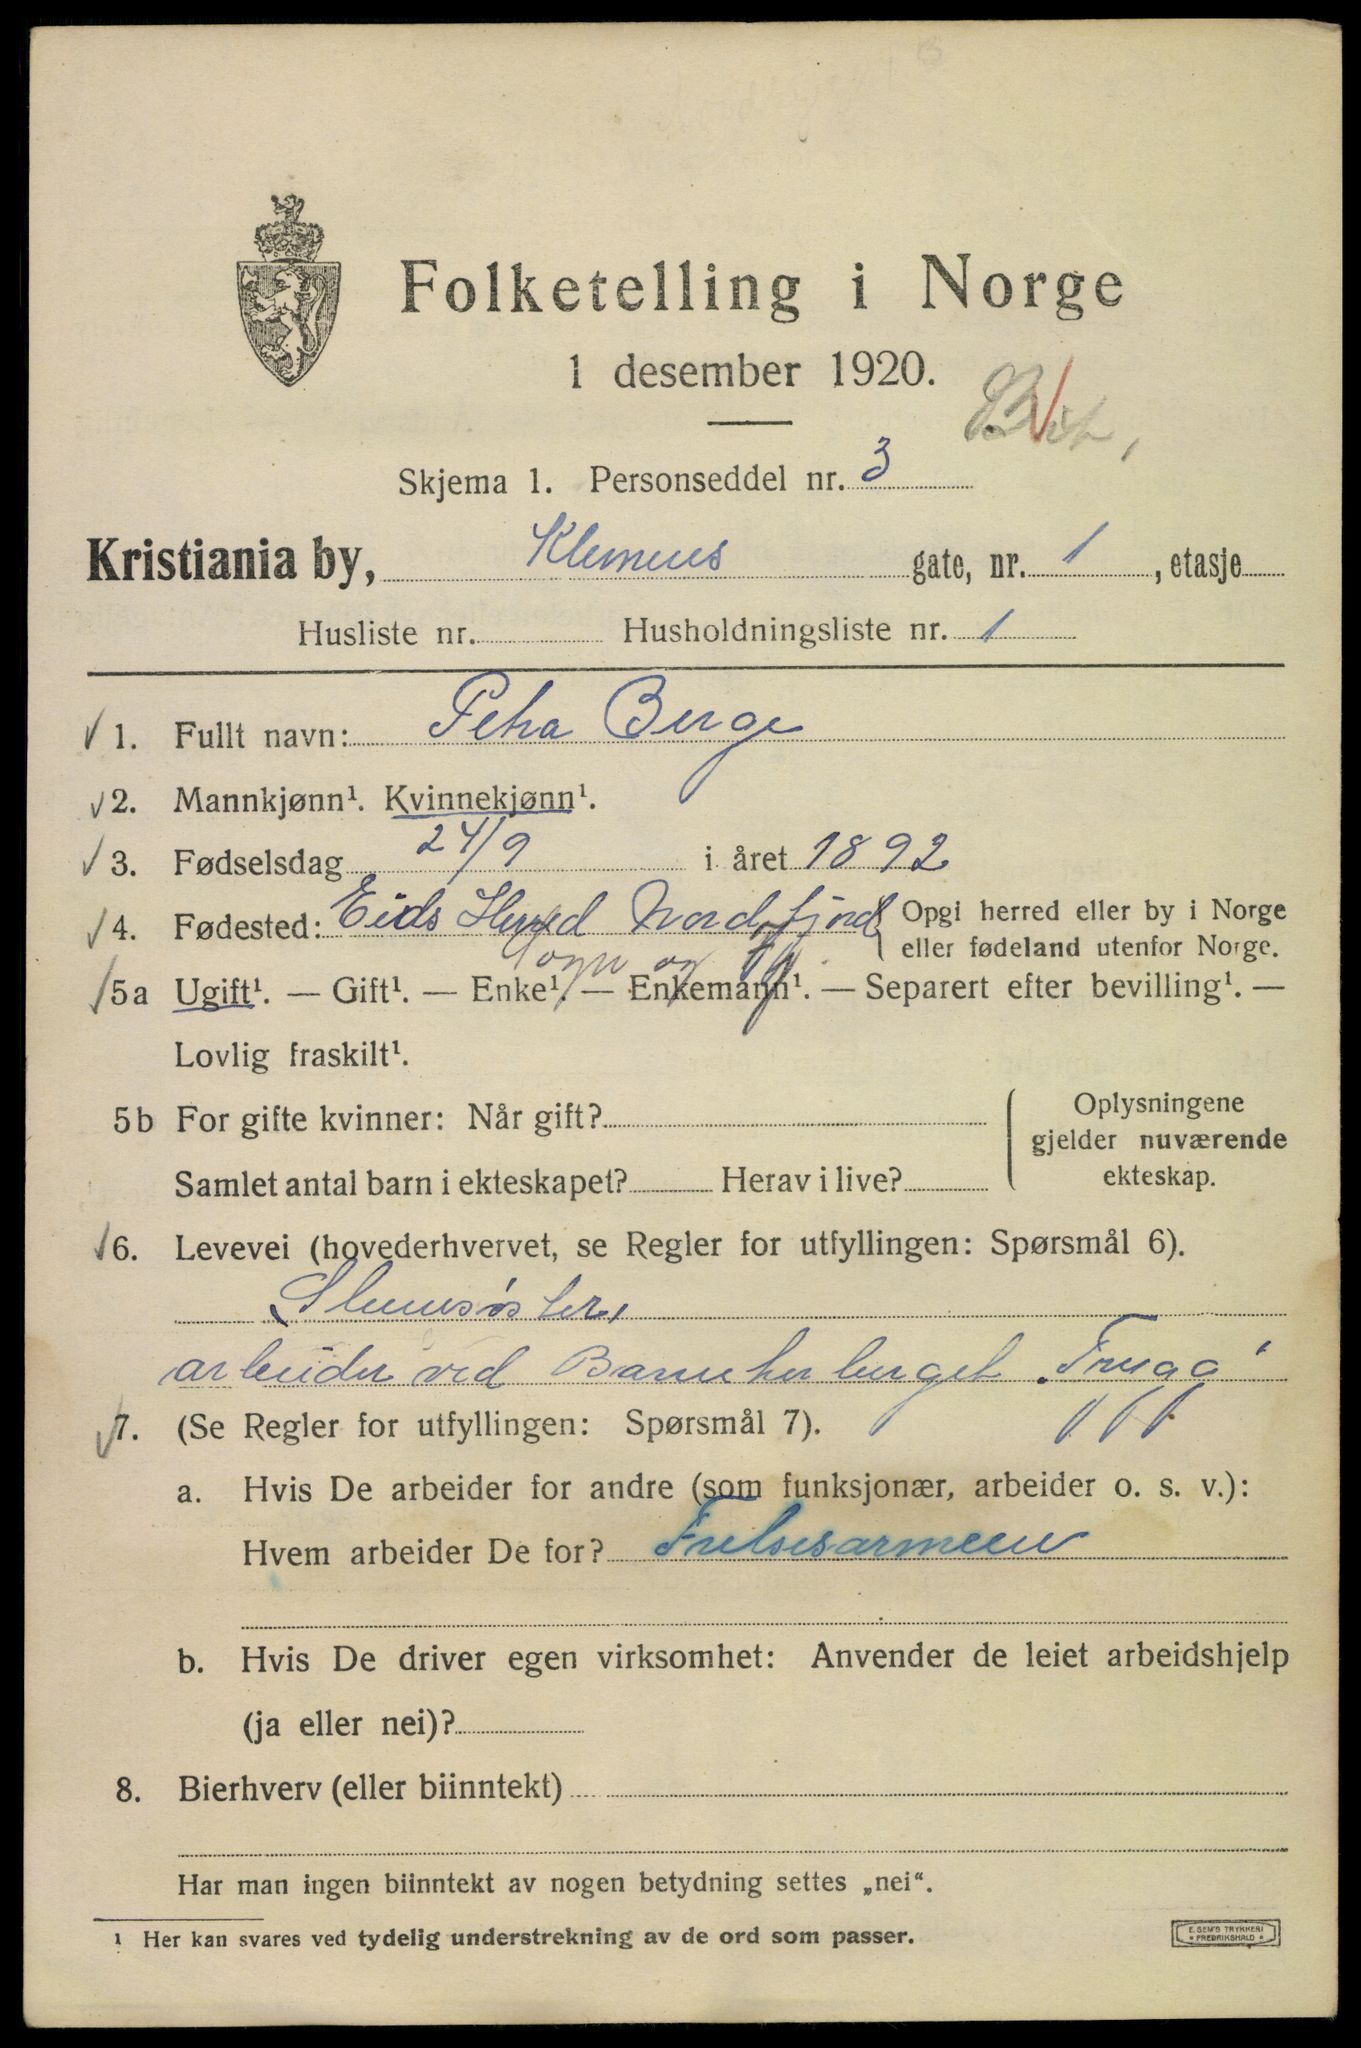 Folketelling i Norge
1 desember 1920.
Skjema 1. Personseddel nr. 3
Kristiania by, Klemens gate, nr. 1, etasje
Husliste nr. Husholdningsliste nr. 1
1. Fullt navn: Petra Berge
2. Mannkjønn¹. Kvinnekjønn¹.
3. Fødselsdag 24/9 i året 1892
4. Fødested: Eids Herred Nordfjord Opgi herred eller by i Norge
eller fødeland utenfor Norge.
Sogn og Fj.
5a Ugift¹. — Gift¹. — Enke¹. — Enkemann¹. — Separert efter bevilling¹. —
Lovlig fraskilt¹.
5b For gifte kvinner: Når gift? Oplysningene
gjelder nuværende
Samlet antal barn i ekteskapet? Herav i live? ekteskap.
6. Levevei (hovederhvervet, se Regler for utfyllingen: Spørsmål 6).
Slumsøster,
arbeider ved Barneherberget „Trygg"
7. (Se Regler for utfyllingen: Spørsmål 7).
a. Hvis De arbeider for andre (som funksjonær, arbeider o. s. v.):
Hvem arbeider De for? Frelsesarmeen
b. Hvis De driver egen virksomhet: Anvender de leiet arbeidshjelp
(ja eller nei)?
8. Bierhverv (eller biinntekt)
Har man ingen biinntekt av nogen betydning settes „nei“.
¹ Her kan svares ved tydelig understrekning av de ord som passer.
E. SEM'S TRYKKERI
* FREDRIKSHALD *